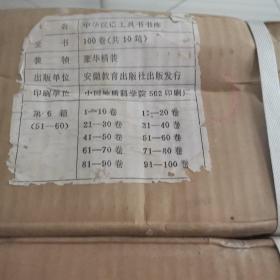 名 中华汉语工具书书库
全书 100卷(共10箱)
装帧 豪华精装
出版单位 安徽教育出版社出版发行
印刷单位 中国地质科学院562印刷
第6箱 1—10卷 11—20卷
(51—60) 21—30卷 31—40卷
41—50卷 51—60卷
61—70卷 71—80卷
81—90卷 91—100卷